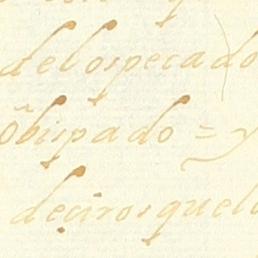 delos pecado
Obispado = y
deciros, quelo